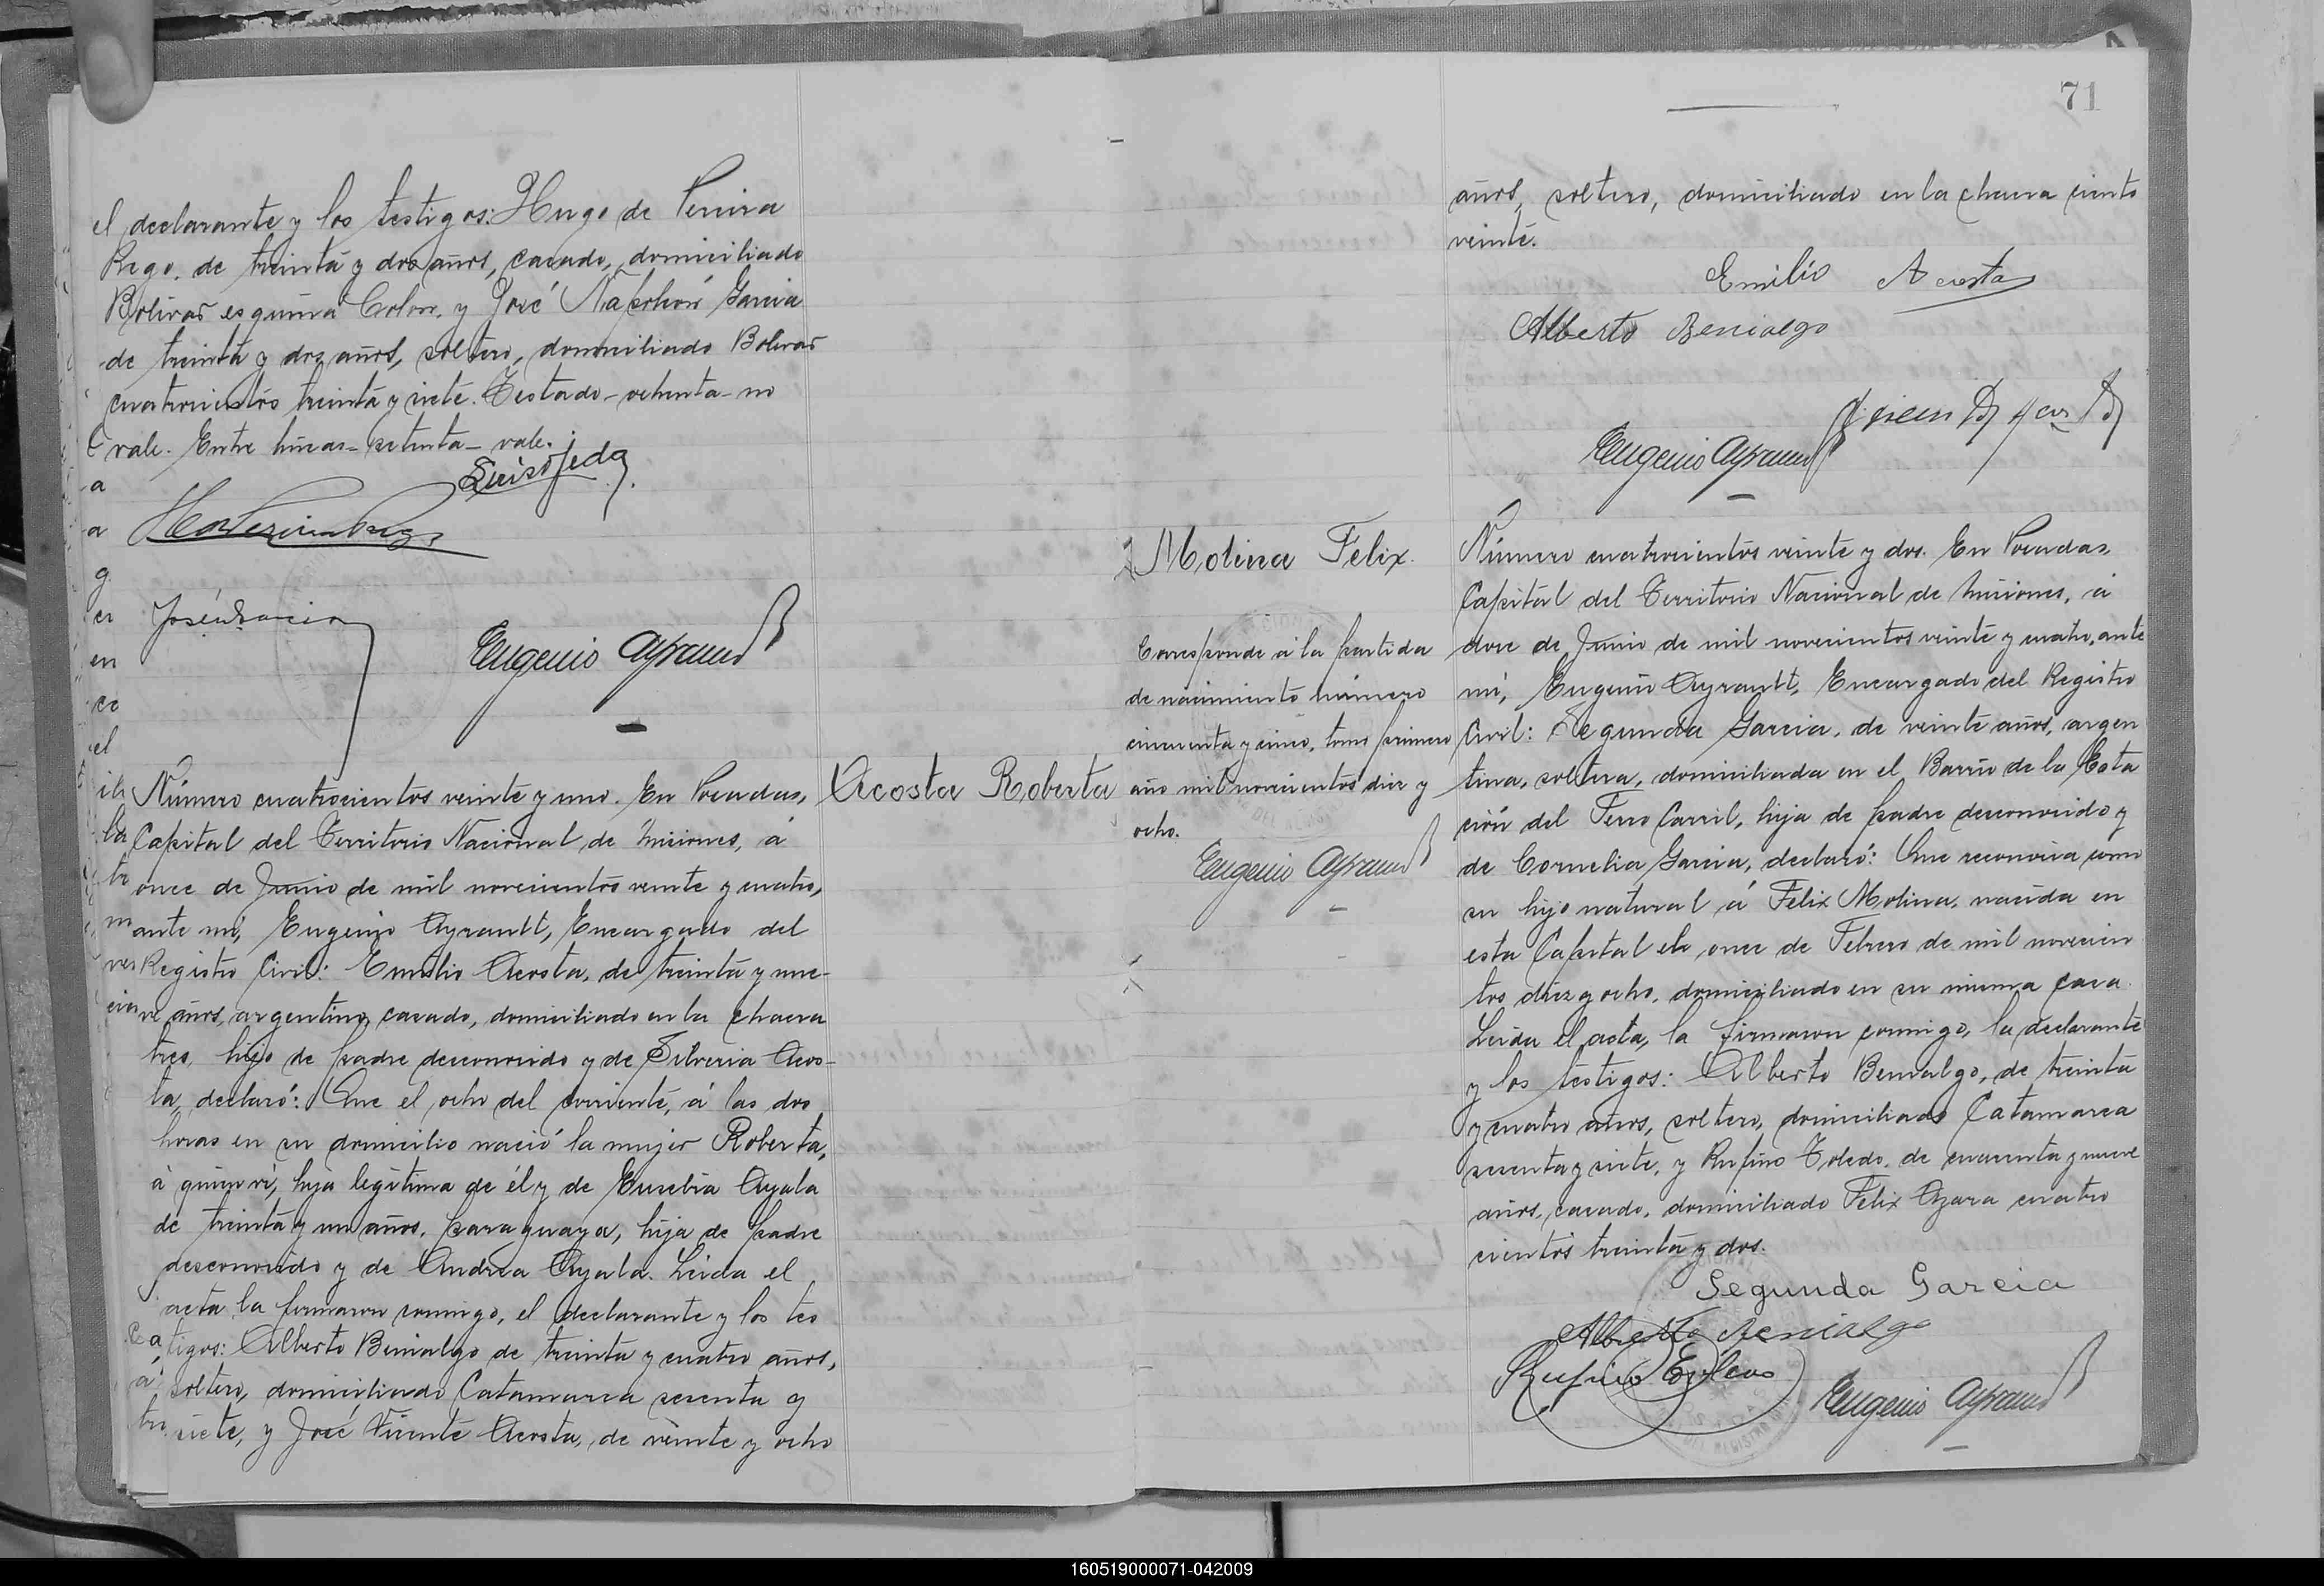 el declarante y los testigos: Hugo de Pereira
Rego, de treinta y dos años, casado, domiciliado
Bolivar esquina Colon, y José Napoleón Garcia
de treinta y dos años, soltero, domiciliado Bolivar
cuatrocientos treinta y siete. Testado - ochenta - no
vale. Entre lineas - setenta - vale.
Luis Ojeda
José N Garcia
Eugenio Ayrault
Número cuatrocientos veinte y uno. En Posadas,
Capital del Territorio Nacional de Misiones, á
once de Junio de mil novecientos veinte y cuatro,
ante mi, Eugenio Ayrault, Encargado del
Registro Civil: Emilio Acosta, de treinta y nue-
ve años, argentino, casado, domiciliado en la chacra
tres, hijo de padre desconocido y de Silveria Acos-
ta, declaró: Que el ocho del corriente, á las dos
horas en su domicilio nació la mujer Roberta,
á quien vi, hija legitima de él y de Eusebia Ayala
de treinta y un años, paraguaya, hija de padre
desconocido y de Andrea Ayala. Leida el
acta la firmaron conmigo, el declarante y los tes
tigos: Alberto Benialgo de treinta y cuatro años,
soltero, domiciliado Catamarca sesenta y
siete, y José Vicente Acosta, de veinte y ocho
Acosta Roberta
71
años, soltero, domiciliado en la chacra ciento
veinte.
Emilio Acosta
Alberto Benialgo
Eugenio Ayrault
Molina Felix.
Corresponde á la partida
de nacimiento número
cincuenta y cinco, tomo primero
año mil novecientos diez y
ocho.
Eugenio Ayrault
Número cuatrocientos veinte y dos. En Posadas,
Capital del Territorio Nacional de Misiones, á
doce de Junio de mil novecientos veinte y cuatro, ante
mi, Eugenio Ayrault, Encargado del Registro
Civil: Segunda Garcia, de veinte años, argen
tina, soltera, domiciliada en el Barrio de la Esta
ción del Ferro Carril, hija de padre desconocido y
de Cornelia Garcia, declaró: Que reconocia como
su hijo natural á Felix Molina, nacida en
esta Capital el once de Febrero de mil novecien
tos diez y ocho, domiciliado en su misma casa.
Leida el acta, la firmaron conmigo, la declarante
y los testigos: Alberto Benialgo, de treinta
y cuatro años, soltero, domiciliado Catamarca
sesenta y siete, y Rufino Toledo, de cuarenta y nueve
años, casado, domiciliado Felix Azara cuatro
cientos treinta y dos.
Segunda Garcia
Alberto Benialgo
Rufino Toledo
Eugenio Ayrault
160519000071-042009